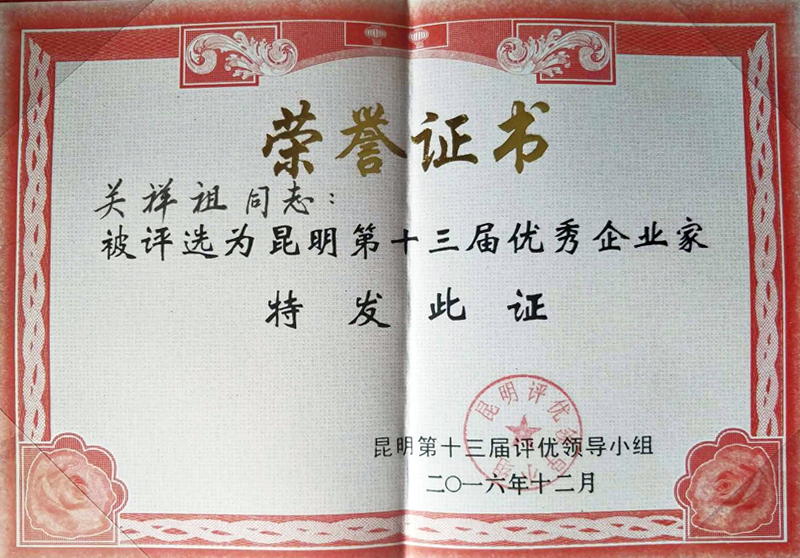 荣誉证书
关祥祖 同志：
被评选为昆明第十三届优秀企业家
特发此证
昆明第十三届评优领导小组
二〇一六年十二月